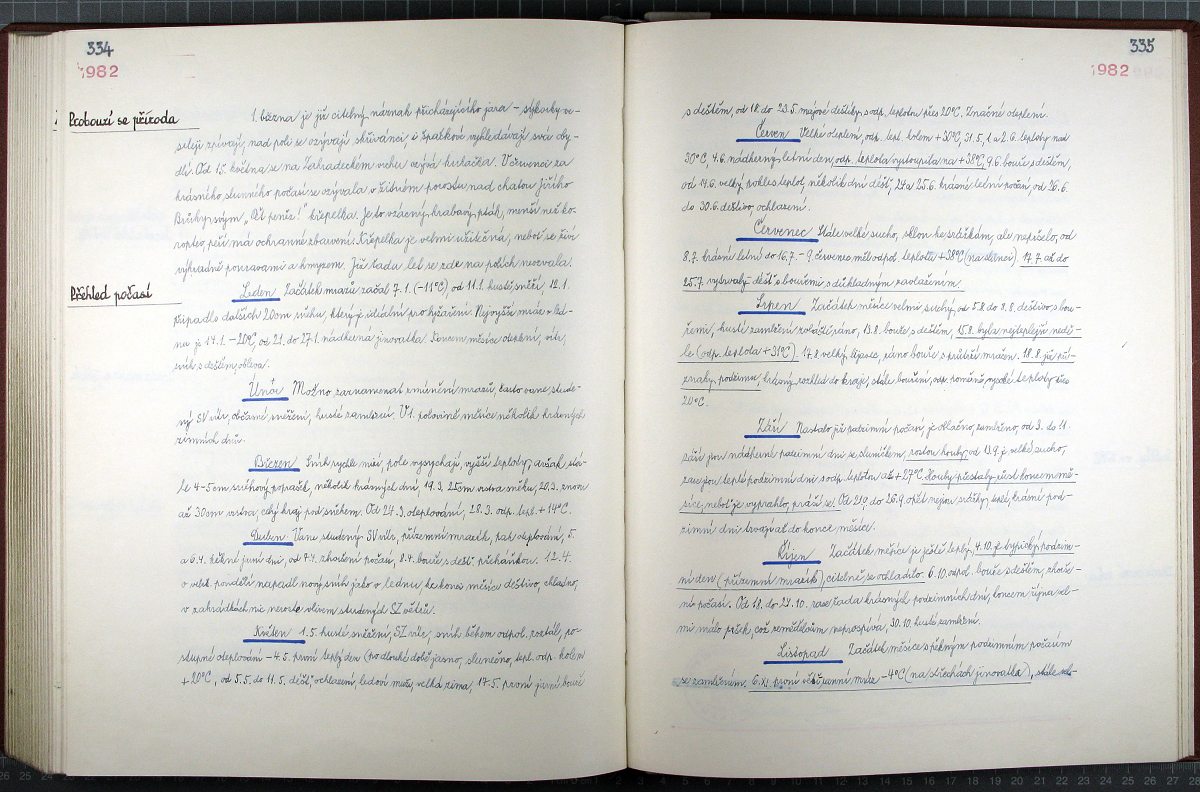 334
1982
Probouzí se příroda
1. března je již citelný náznak přicházejícího jara – sýkorky ve-
seleji zpívají, nad poli se ozývají skřivánci, i špačkové vyhledávají svá oby-
dlí. Od 15. května se na Zahradeckém vrchu ozývá kukačka. V červenci za
krásného slunného počasí se ozývala v žitném porostu nad chatou Jiřího
svým „Pět peněz!" křepelka. Je to vzácný hrabavý pták, menší než ko-
roptev, peří má ochranné zbarvení. Křepelka je velmi užitečná, neboť se živí
výhradně ponravami a hmyzem. Již řadu let se zde na polích neozvala.
Přehled počasí
Leden Začátek mrazů začal 7.1. (–11°C), od 11.1. hustě sněží, 12.1.
připadlo dalších 20cm sněhu, který je ideální pro lyžaření. Nejvyšší mráz v led-
nu je 14.1. –20°C, od 21. do 27.1. nádherná jinovatka. Koncem měsíce oteplení, vítr,
sníh s deštěm, obleva.
Únor Možno zaznamenat zmírnění mrazů, často vane stude-
ný SV vítr, občasné sněžení, husté zamlžení. V 1. polovině měsíce několik krásných
zimních dnů.
Březen Sníh rychle mizí, pole vysychají, vyšší teploty, avšak stá-
le 4-5cm sněhový poprašek, několik krásných dní, 19.3. 25cm vrstva sněhu, 20.3. znovu
až 30cm vrstva, celý kraj pod sněhem. Od 24.3. oteplování, 28.3. odp. tepl. + 14°C.
Duben Vane studený SV vítr, přízemní mrazík, pak oteplování, 5.
a 6.4. pěkné jarní dni, od 7.4. zhoršení počasí, 8.4. bouře s dešť. přeháňkou. 12.4.
o velik. pondělí napadl nový sníh jako v lednu, ke konci měsíce deštivo, chladno,
v zahrádkách nic neroste vlivem studených SZ větrů.
Květen 1.5. husté sněžení, SZ vítr, sníh během odpol. roztál, po-
stupné oteplování – 4.5. první teplý den (po dlouhé době jasno, slunečno, tepl. odp. kolem
+20°C, od 5.5. do 11.5. déšť, ochlazení, ledoví muži, velká zima, 17.5. první jarní bouře
335
1982
s deštěm, od 18. do 23.5. májové deštíky, s odp. teplotou přes 20°C. Značné oteplení.
Červen Velké oteplení, odp. tepl. kolem + 30°C, 31.5, 1. a 2.6. teploty nad
30°C, 4.6. nádherný letní den, odp. teplota vystoupila na + 38°C, 9.6. bouře s deštěm,
od 14.6. velký pokles teplot, několik dní déšť, 24. a 25.6. krásné letní počasí, od 26.6.
do 30.6. deštivo, ochlazení.
Červenec Stále velké sucho, sklon ke srážkám, ale nepršelo, od
8.7. krásné letní do 16.7. – 9. červenec měl odpol. teplotu + 38°C (na slunci). 17.7. až do
25.7. vytrvalý déšť s bouřemi s důkladným zavlažením.
Srpen Začátek měsíce velmi suchý, od 5.8. do 8.8. deštivo s bou-
řemi, husté zamlžení zvláště ráno, 13.8. bouře s deštěm, 15.8. byla nejteplejší nedě-
le (odp. teplota + 31°C) 17.8. velký lijavec, ráno bouře s průtrží mračen. 18.8. již pří-
znaky podzimu, krásný rozhled do kraje, stále bouření, odp. poměrně vysoké teploty přes
20°C.
Září Nastalo již podzimní počasí, je oblačno, zamlženo, od 3. do 11.
září jsou nádherné podzimní dni se sluníčkem, rostou houby, od 13.9. je velké sucho,
zase jsou teplé podzimní dni s odp. teplotou až + 27°C. Houby přestaly růst koncem mě-
síce, neboť je vyprahlo, práší se. Od 21.9. do 26.9. opět nejsou srážky, teplé, krásné pod-
zimní dni trvají až do konce měsíce.
Říjen Začátek měsíce je ještě teplý, 4.10. je typický podzim-
ní den (přízemní mrazík), citelně se ochladilo. 6.10. odpol. bouře s deštěm, zhorše-
ní počasí. Od 18. do 24.10. zase řada krásných podzimních dní, koncem října vel-
mi málo pršek, což zemědělcům neprospívá, 30.10. husté zamlžení.
Listopad Začátek měsíce s pěkným podzimním počasím
se zamlžením. 6.XI. první větší ranní mráz –4°C (na střechách jinovatka), stále vel-